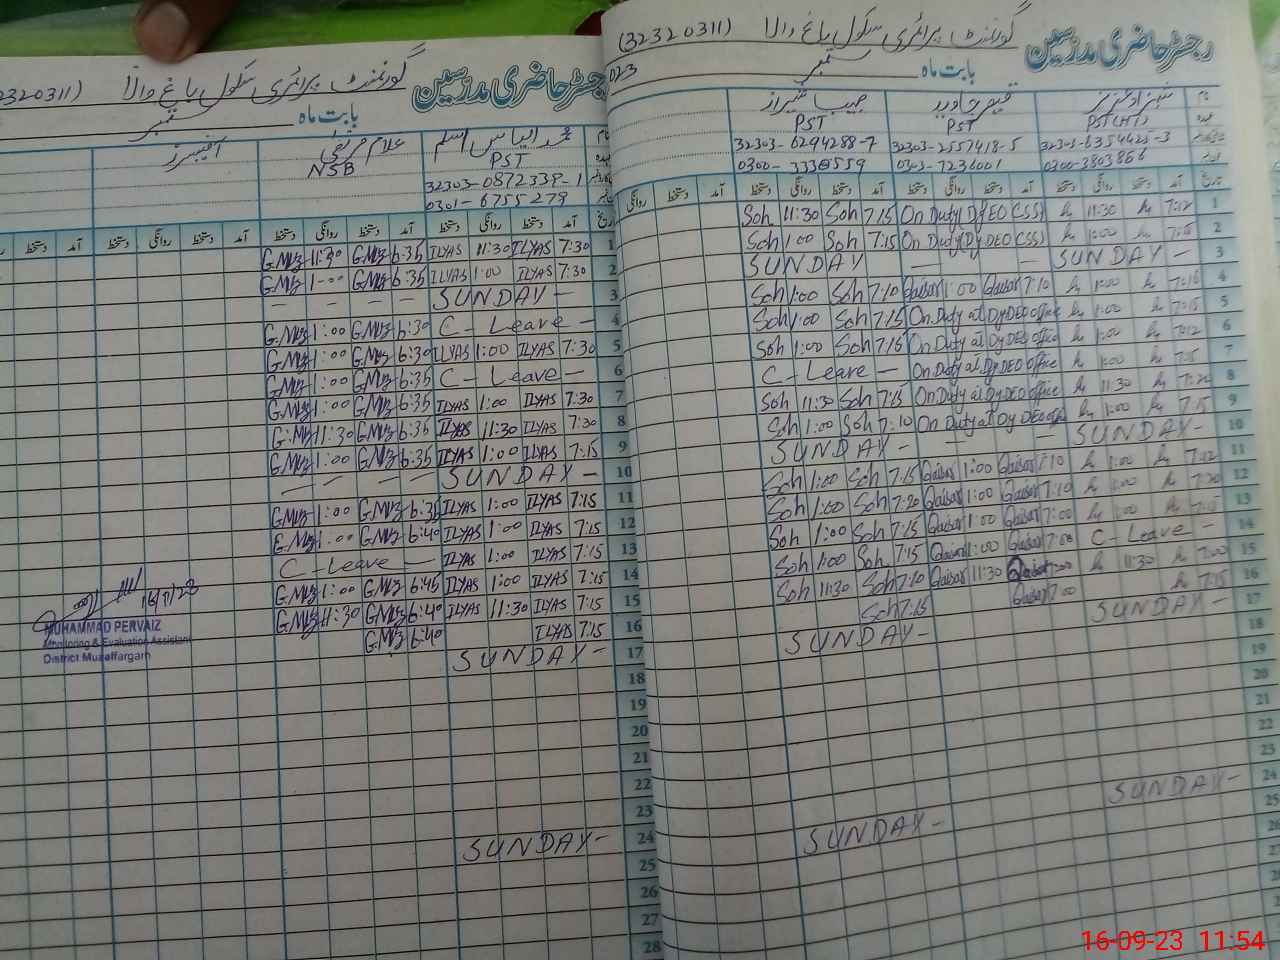 رجسٹر حاضری مدرسین گورنمنٹ پرائمری سکول باغ والا (32320311)
بابت ماہ ستمبر
نام شہزاد عزیز قیصر جاوید
PST PST
32303-6354425-3 32303-2557418-5 32303-6294288-7
0300-3803866 0303-7236001
تاریخ آمد دستخط روانگی دستخط آمد دستخط روانگی دستخط آمد دستخط روانگی دستخط آمد
1 7:12 11:30 On Duty (DyDEO CSS) 7:15 Soh 11:30 Soh
2 7:15 1:00 On Duty (DyDEO CSS) 7:15 Soh 1:00 Soh
3 SUNDAY – – – SUNDAY
4 7:10 Qaisar 1:00 Qaisar 7:10 Soh 1:00 Soh
5 7:15 1:00 On Duty at DyDEO office 7:15 Soh 1:00 Soh
6 7:12 1:00 On Duty at DyDEO office 7:15 Soh 1:00 Soh
7 7:15 1:00 On Duty at DyDEO office C – Leave –
8 7:20 11:30 On Duty at DyDEO office 7:15 Soh 11:30 Soh
9 7:15 1:00 On Duty at DyDEO office 7:10 Soh 1:00 Soh
10 SUNDAY – – – SUNDAY –
11 1:00 7:10 Qaisar 1:00 Qaisar 7:15 Soh 1:00 Soh
12 7:20 1:00 7:10 Qaisar 1:00 Qaisar 7:20 Soh 1:00 Soh
13 1:00 7:00 Qaisar 1:00 Qaisar 7:15 Soh 1:00 Soh
14 C – Leave – Qaisar 1:00 Qaisar 7:15 Soh 1:00 Soh
15 7:00 11:30 Qaisar 11:30 Qaisar 7:10 Soh 11:30 Soh
16 7:15 7:00 Qaisar 7:15 Soh
17 SUNDAY – SUNDAY –
18
19
20
21
22
23
24 SUNDAY – SUNDAY –
25
26
27
28
رجسٹر حاضری مدرسین گورنمنٹ پرائمری سکول باغ والا (2320311)
بابت ماہ ستمبر
نام محمد الیاس اسلم
PST NSB
32303-0872339-1
0301-6755279
تاریخ آمد دستخط روانگی دستخط آمد دستخط روانگی دستخط آمد دستخط روانگی دستخط آمد دستخط
1 7:30 ILYAS 11:30 ILYAS 6:35 GMz 11:30 GMz
2 7:30 ILYAS 1:00 ILYAS 6:35 GMz 1:00 GMz
3 SUNDAY – – – – –
4 C – Leave – 6:30 GMz 1:00 GMz
5 7:30 ILYAS 1:00 ILYAS 6:30 GMz 1:00 GMz
6 C – Leave – 6:35 GMz 1:00 GMz
7 7:30 ILYAS 1:00 ILYAS 6:35 GMz 1:00 GMz
8 7:30 ILYAS 11:30 ILYAS 6:35 GMz 11:30 GMz
9 7:15 ILYAS 1:00 ILYAS 6:35 GMz 1:00 GMz
10 SUNDAY – – – – –
11 7:15 ILYAS 1:00 ILYAS 6:35 GMz 1:00 GMz
12 7:15 ILYAS 1:00 ILYAS 6:40 GMz 1:00 GMz
13 7:15 ILYAS 1:00 ILYAS C – Leave –
14 7:15 ILYAS 1:00 ILYAS 6:45 GMz 1:00 GMz
15 7:15 ILYAS 11:30 ILYAS 6:40 GMz 11:30 GMz
16 7:15 ILYAS 6:40 GMz
17 SUNDAY –
18
19
20
21
22
23
24 SUNDAY –
25
26
27
28
MUHAMMAD PERVAIZ
Monitoring & Evaluation Assistant
District Muzaffargarh
16-09-23 11:54